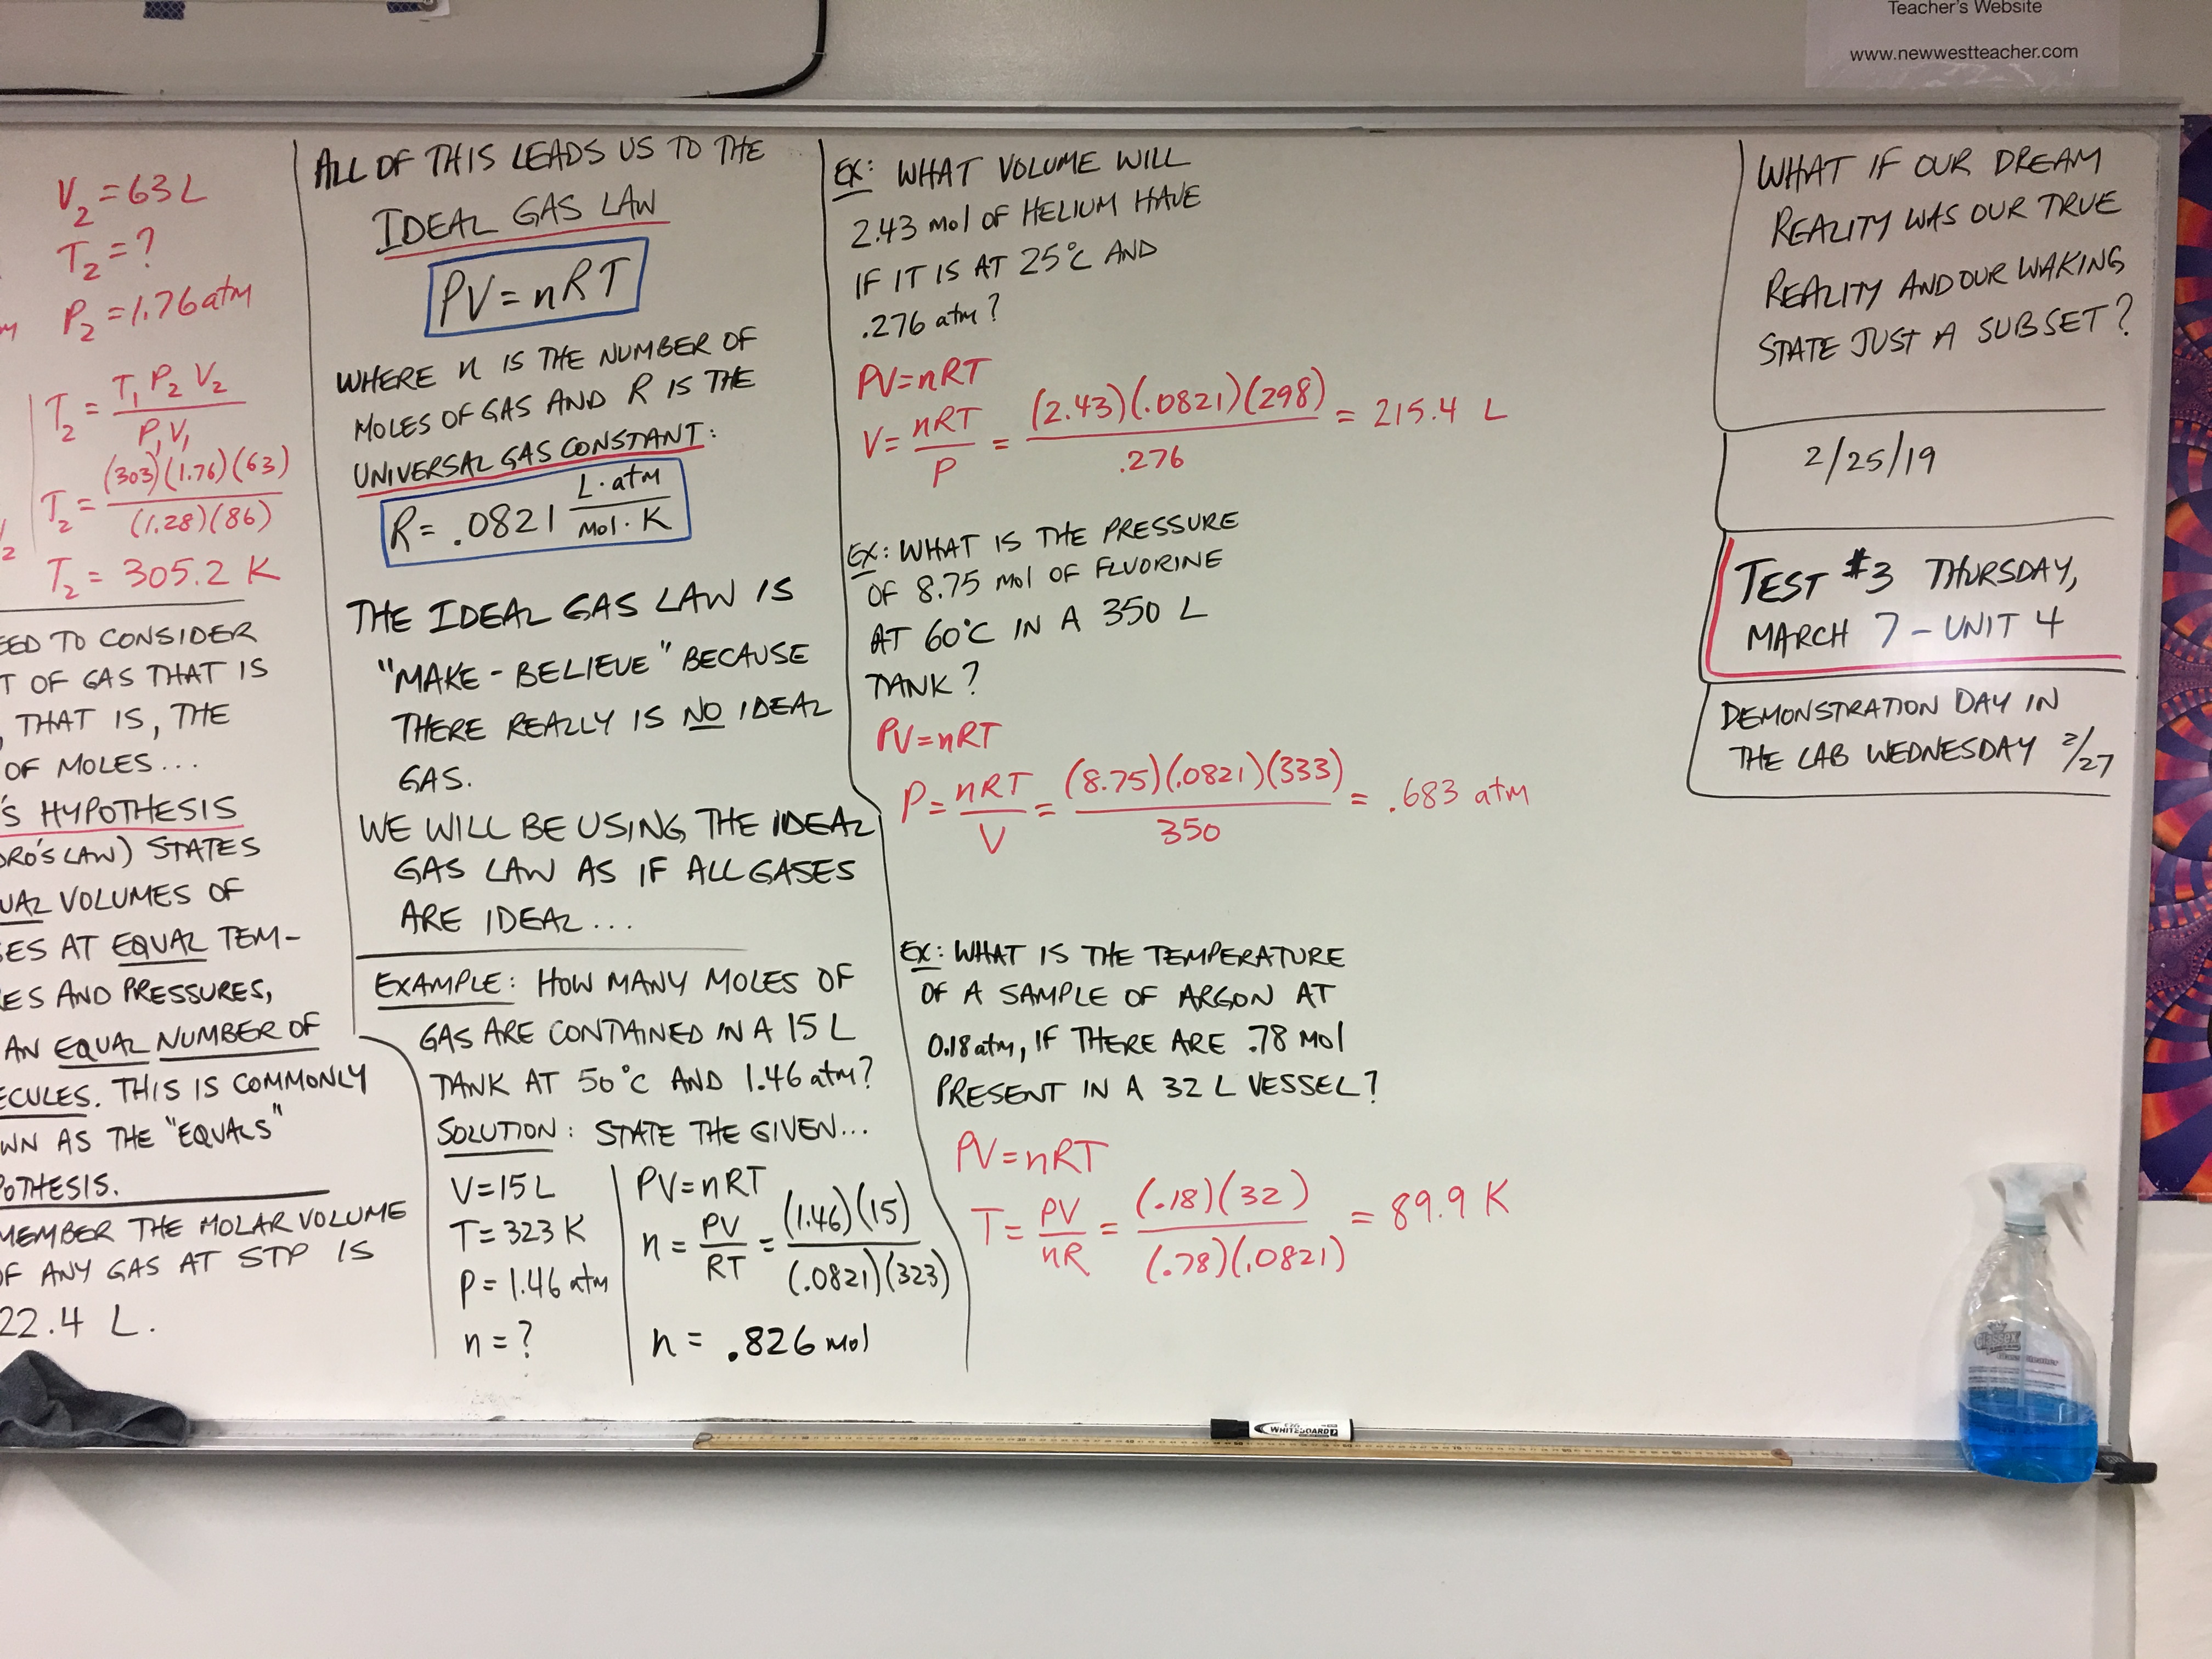 Teacher's Website
www.newwestteacher.com
V₂ = 63 L
T₂ = ?
P₂ = 1.76 atm
T₂ = T₁ P₂ V₂ / P₁ V₁
T₂ = (303)(1.76)(63) / (1.28)(86)
T₂ = 305.2 K
EED TO CONSIDER
T OF GAS THAT IS
, THAT IS, THE
OF MOLES...
'S HYPOTHESIS
DRO'S LAW) STATES
UAL VOLUMES OF
SES AT EQUAL TEM-
RES AND PRESSURES,
AN EQUAL NUMBER OF
ECULES. THIS IS COMMONLY
WN AS THE "EQUALS"
POTHESIS.
MEMBER THE MOLAR VOLUME
OF ANY GAS AT STP IS
22.4 L.
ALL OF THIS LEADS US TO THE
IDEAL GAS LAW
PV = nRT
WHERE n IS THE NUMBER OF
MOLES OF GAS AND R IS THE
UNIVERSAL GAS CONSTANT:
R = .0821 L·atm / mol·K
THE IDEAL GAS LAW IS
"MAKE-BELIEVE" BECAUSE
THERE REALLY IS NO IDEAL
GAS.
WE WILL BE USING THE IDEAL
GAS LAW AS IF ALL GASES
ARE IDEAL...
EXAMPLE: HOW MANY MOLES OF
GAS ARE CONTAINED IN A 15 L
TANK AT 50°C AND 1.46 atm?
SOLUTION: STATE THE GIVEN...
V = 15 L
T = 323 K
P = 1.46 atm
n = ?
PV = nRT
n = PV / RT = (1.46)(15) / (.0821)(323)
n = .826 mol
EX: WHAT VOLUME WILL
2.43 mol OF HELIUM HAVE
IF IT IS AT 25°C AND
.276 atm?
PV = nRT
V = nRT / P = (2.43)(.0821)(298) / .276 = 215.4 L
EX: WHAT IS THE PRESSURE
OF 8.75 mol OF FLUORINE
AT 60°C IN A 350 L
TANK?
PV = nRT
P = nRT / V = (8.75)(.0821)(333) / 350 = .683 atm
EX: WHAT IS THE TEMPERATURE
OF A SAMPLE OF ARGON AT
0.18 atm, IF THERE ARE .78 mol
PRESENT IN A 32 L VESSEL?
PV = nRT
T = PV / nR = (.18)(32) / (.78)(.0821) = 89.9 K
WHAT IF OUR DREAM
REALITY WAS OUR TRUE
REALITY AND OUR WAKING
STATE JUST A SUBSET?
2/25/19
TEST #3 THURSDAY,
MARCH 7 - UNIT 4
DEMONSTRATION DAY IN
THE LAB WEDNESDAY 2/27
WHITEBOARD